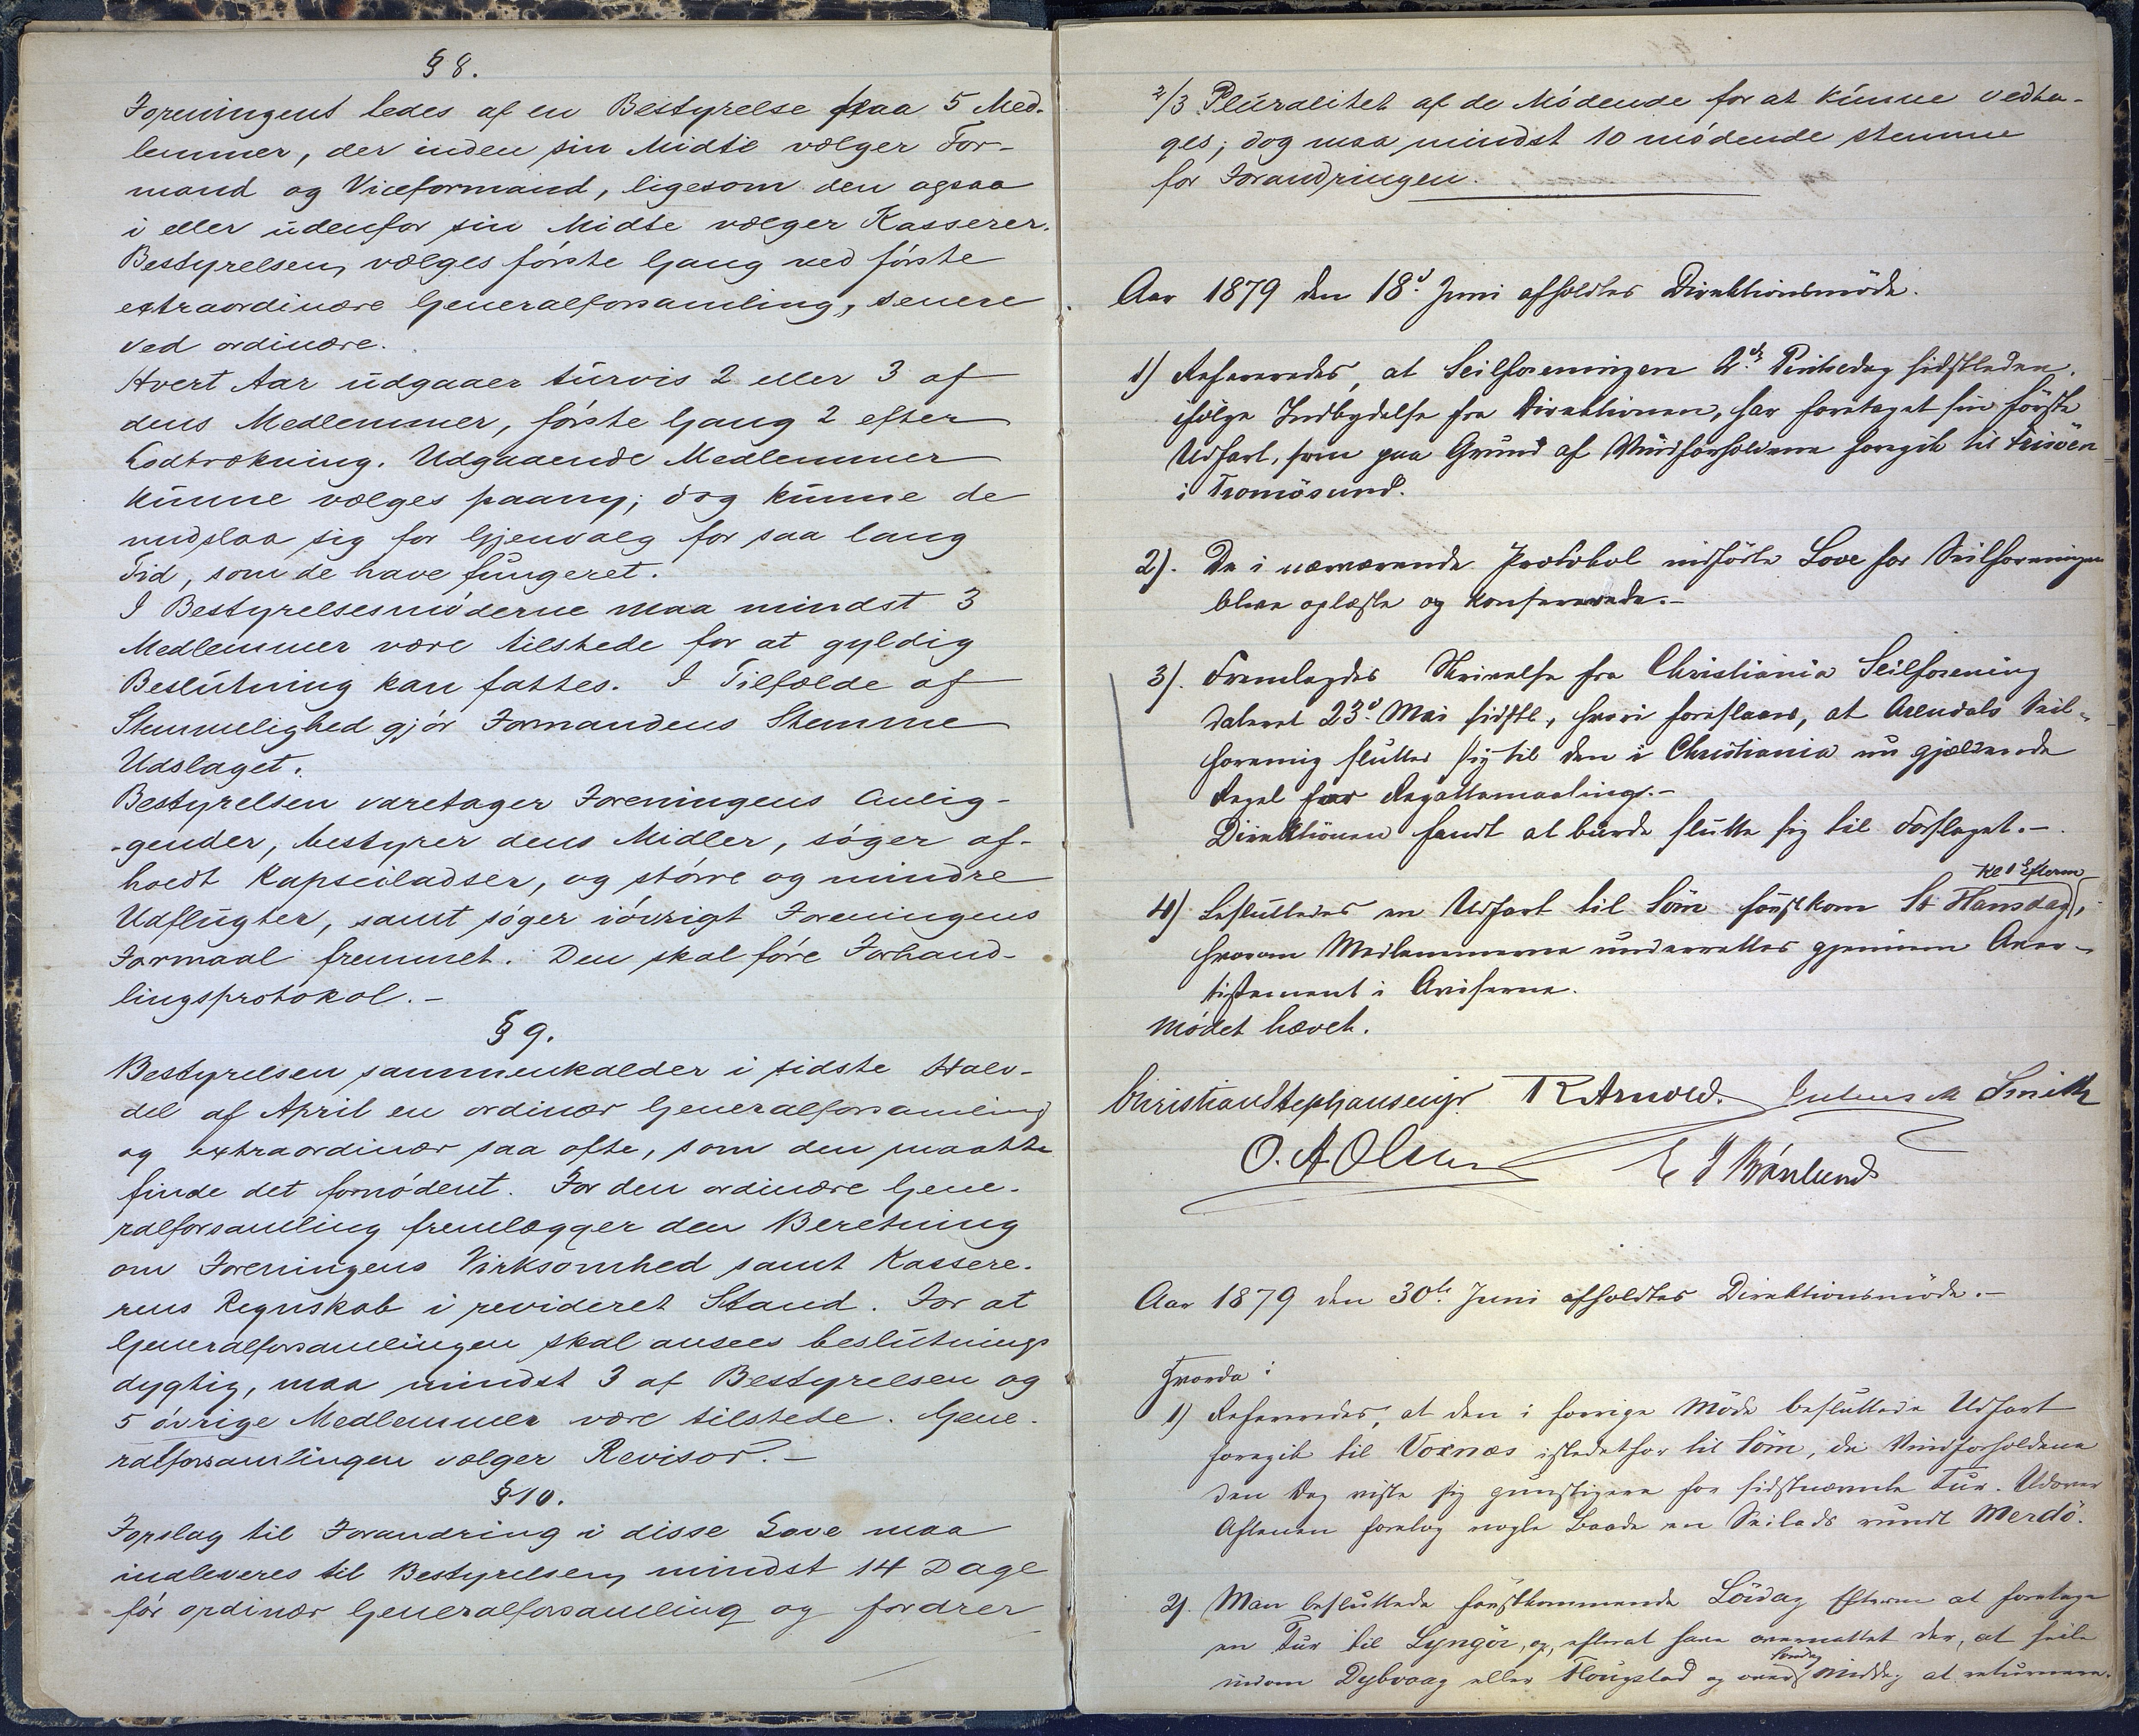 § 8.
Foreningens ledes af en Bestyrelse paa 5 Med-
lemmer, der inden sin Midte vælger For-
mand og Viceformand, ligesom den ogsaa
i eller udenfor sin Midte vælger Kasserer.
Bestyrelsen vælges første Gang ved første
extraordinære Generalforsamling, senere
ved ordinære.
Hvert Aar udgaaer turvis 2 eller 3 af
dens Medlemmer, første Gang 2 efter
Lodtrækning. Udgaaende Medlemmer
kunne vælges paany; dog kunne de
undslaa sig for Gjenvalg for saa lang
Tid, som de have fungeret.
I Bestyrelsesmøderne maa mindst 3
Medlemmer være tilstede for at gyldig
Beslutning kan fattes. I Tilfælde af
Stemmelighed gjør Formandens Stemme
Udslaget.
Bestyrelsen varetager Foreningens Anlig-
-gender, bestyrer dens Midler, søger af-
holdt Kapseiladser, og større og mindre
Udflugter, samt søger iøvrigt Foreningens
Formaal fremmet. Den skal føre Forhand-
lingsprotokol.-
§ 9.
Bestyrelsen sammenkalder i sidste Halv-
del af April en ordinær Generalforsamling
og extraordinær saa ofte, som den maatte
finde det fornødent. For den ordinære Gene-
ralforsamling fremlægger den Beretning
om Foreningens Virksomhed samt Kassere-
rens Regnskab i revideret Stand. For at
Generalforsamlingen skal ansees beslutnings
dygtig, maa mindst 3 af Bestyrelsen og
5 øvrige Medlemmer være tilstede. Gene-
ralforsamlingen vælger Revisor.-
§ 10.
Forslag til Forandring i disse Love maa
indleveres til Bestyrelsen mindst 14 Dage
før ordinær Generalforsamling og fordrer
2/3 Pluralitet af de Mødende for at kunne vedta-
ges; dog maa mindst 10 mødende stemme
for Forandringen.
Aar 1879 den 18d. Juni afholdtes Direktionsmøde.
1) Refereredes, at Seilforeningen 2den Pintsedag sidstleden,
ifølge Indbydelse fra Direktionen, har foretaget sin første
Udfart, som paa Grund af Vindforholdene foregik til Frisøen
i Tromøsund.
2). De i nærværende Protokol indførte Love for Seilforeningen
bleve oplæste og konfererede.-
3). Fremlagdes Skrivelse fra Christiania Seilforening
dateret 23d. Mai sidstl., hvori foreslaaes, at Arendals Seil-
forening slutter sig til den i Christiania nu gjældende
Regel for Regattamaaling.-
Direktionen fandt at burde slutte sig til Forslaget.-
Kl 1 Efterm
4) Besluttedes en Udfart til Søm førstkom St Hansdag,
hvorom Medlemmerne underrettes gjennem Aver-
tissement i Aviserne.
Mødet hævet.
Christian Stephansen jr. R Arnold. Julius M Smith
O. A. Olsen E J Brønlund
Aar 1879 den 30te Juni afholdtes Direktionsmøde.-
Hvorda:
1) Refereredes, at den i forrige Møde besluttede Udfart
foregik til Voxnæs istedetfor til Søm, da Vindforholdene
den Dag viste sig gunstigere for sidstnævnte Tur. Udover
Aftenen foretog nogle Baade en Seilads rundt Merdø.
2). Man besluttede førstkommende Lørdag Efterm at foretage
en Tur til Lyngør, og, efterat have overnattet der, at seile
Søndag
indom Dybvaag eller Flougstad og over Middag at returnere.